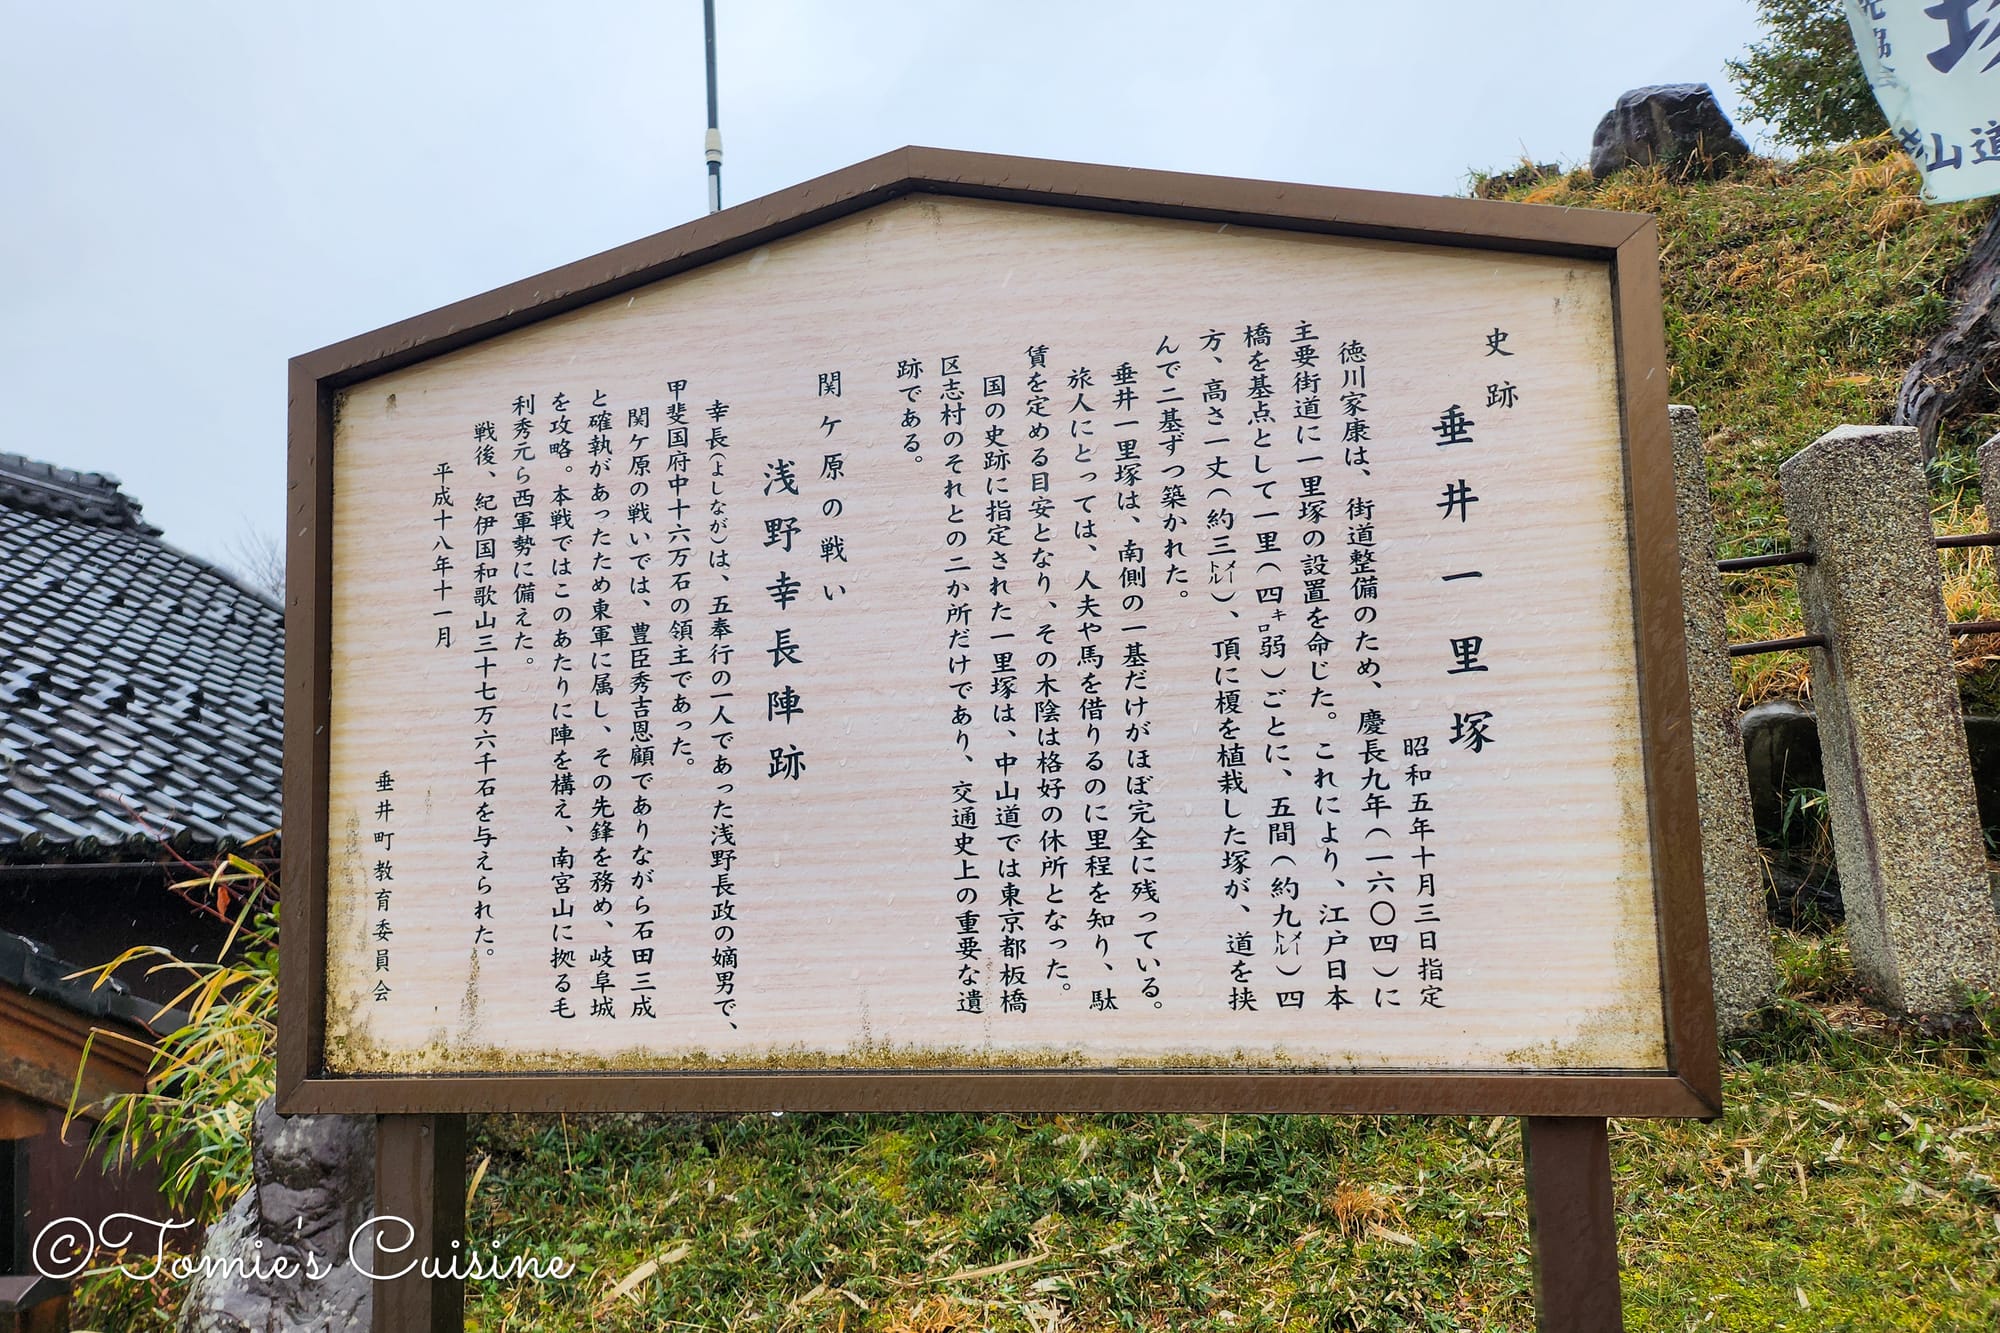 史跡
垂井一里塚
昭和五年十月三日指定
徳川家康は、街道整備のため、慶長九年(一六〇四)に
主要街道に一里塚の設置を命じた。これにより、江戸日本
橋を基点として一里(四㌔弱)ごとに、五間(約九㍍)四
方、高さ一丈(約三㍍)、頂に榎を植栽した塚が、道を挟
んで二基ずつ築かれた。
垂井一里塚は、南側の一基だけがほぼ完全に残っている。
旅人にとっては、人夫や馬を借りるのに里程を知り、駄
賃を定める目安となり、その木陰は格好の休所となった。
国の史跡に指定された一里塚は、中山道では東京都板橋
区志村のそれとの二か所だけであり、交通史上の重要な遺
跡である。
関ケ原の戦い
浅野幸長陣跡
幸長(よしなが)は、五奉行の一人であった浅野長政の嫡男で、
甲斐国府中十六万石の領主であった。
関ケ原の戦いでは、豊臣秀吉恩顧でありながら石田三成
と確執があったため東軍に属し、その先鋒を務め、岐阜城
を攻略。本戦ではこのあたりに陣を構え、南宮山に拠る毛
利秀元ら西軍勢に備えた。
戦後、紀伊国和歌山三十七万六千石を与えられた。
平成十八年十一月
垂井町教育委員会
山道
©Tomie's Cuisine